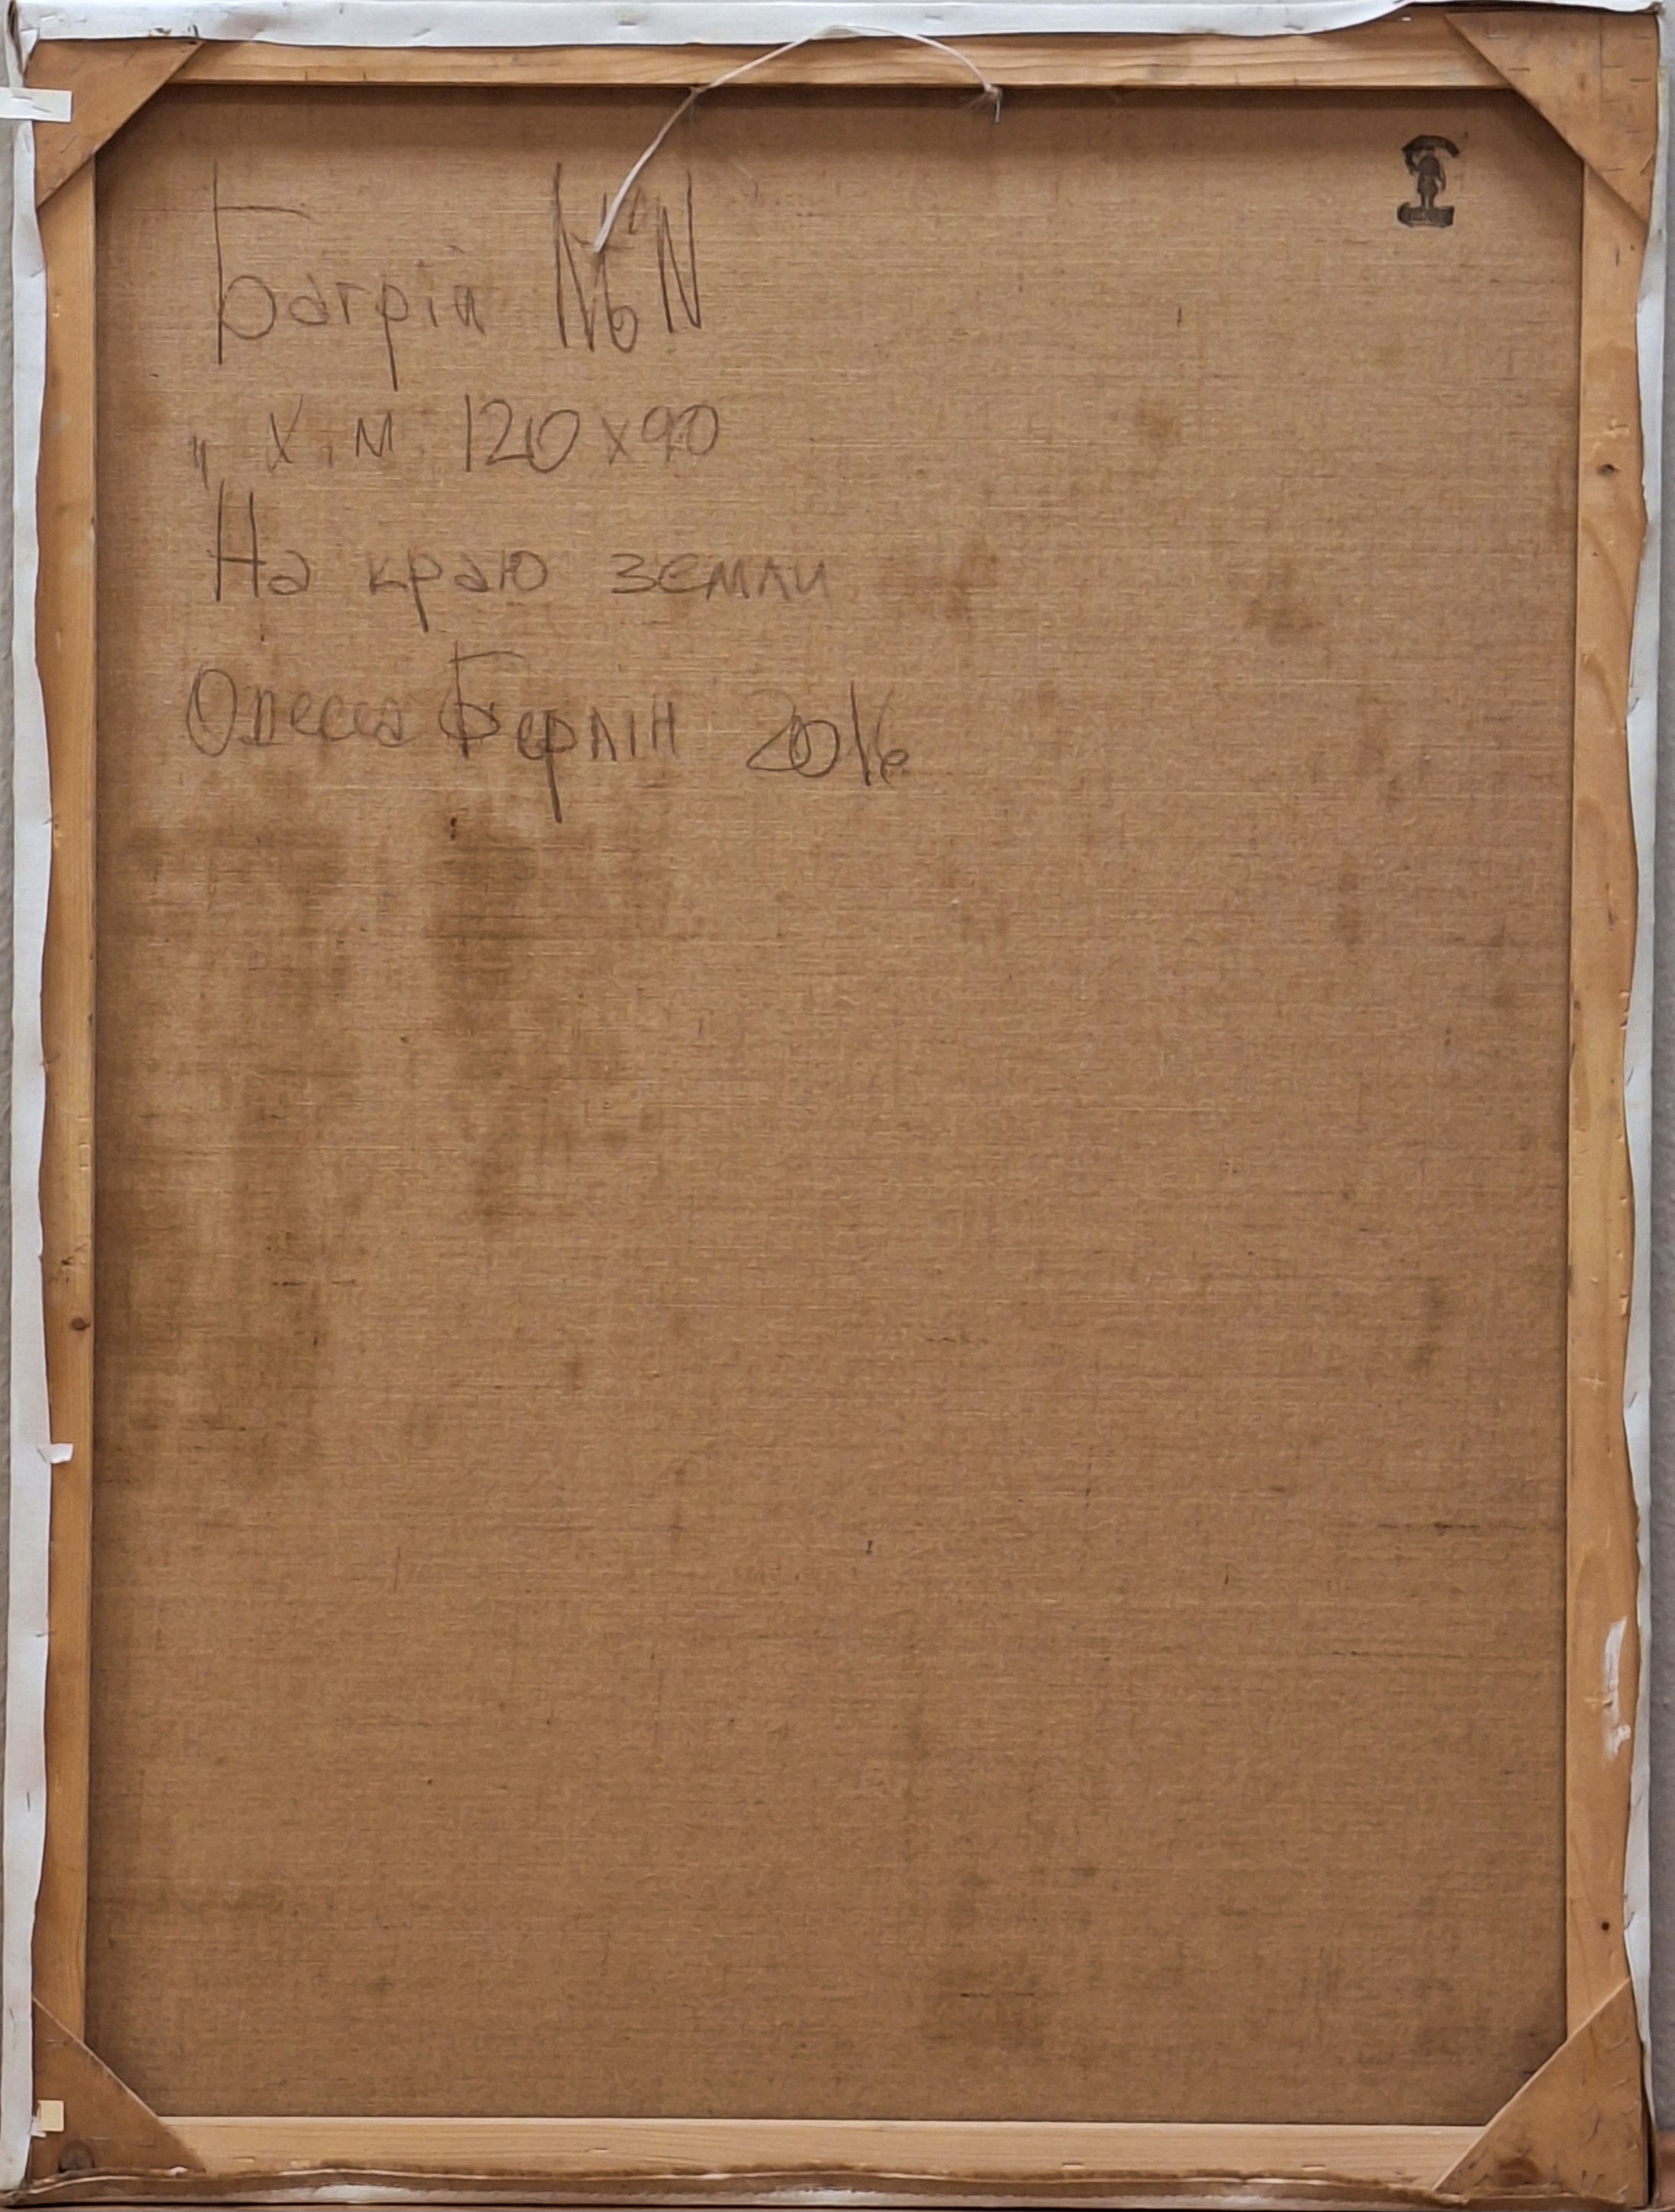 Багрій
„ х.м. 120х90
На краю земли
Одесса Берлін 2016